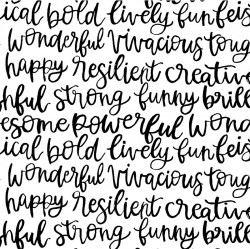 ical bold lively fun feis
wonderful vivacious toug
happy resilient creativ
hful strong funny bril
esome powerful wond
ical bold lively fun feis
wonderful vivacious toug
happy resilient creativ
hful strong funny brill